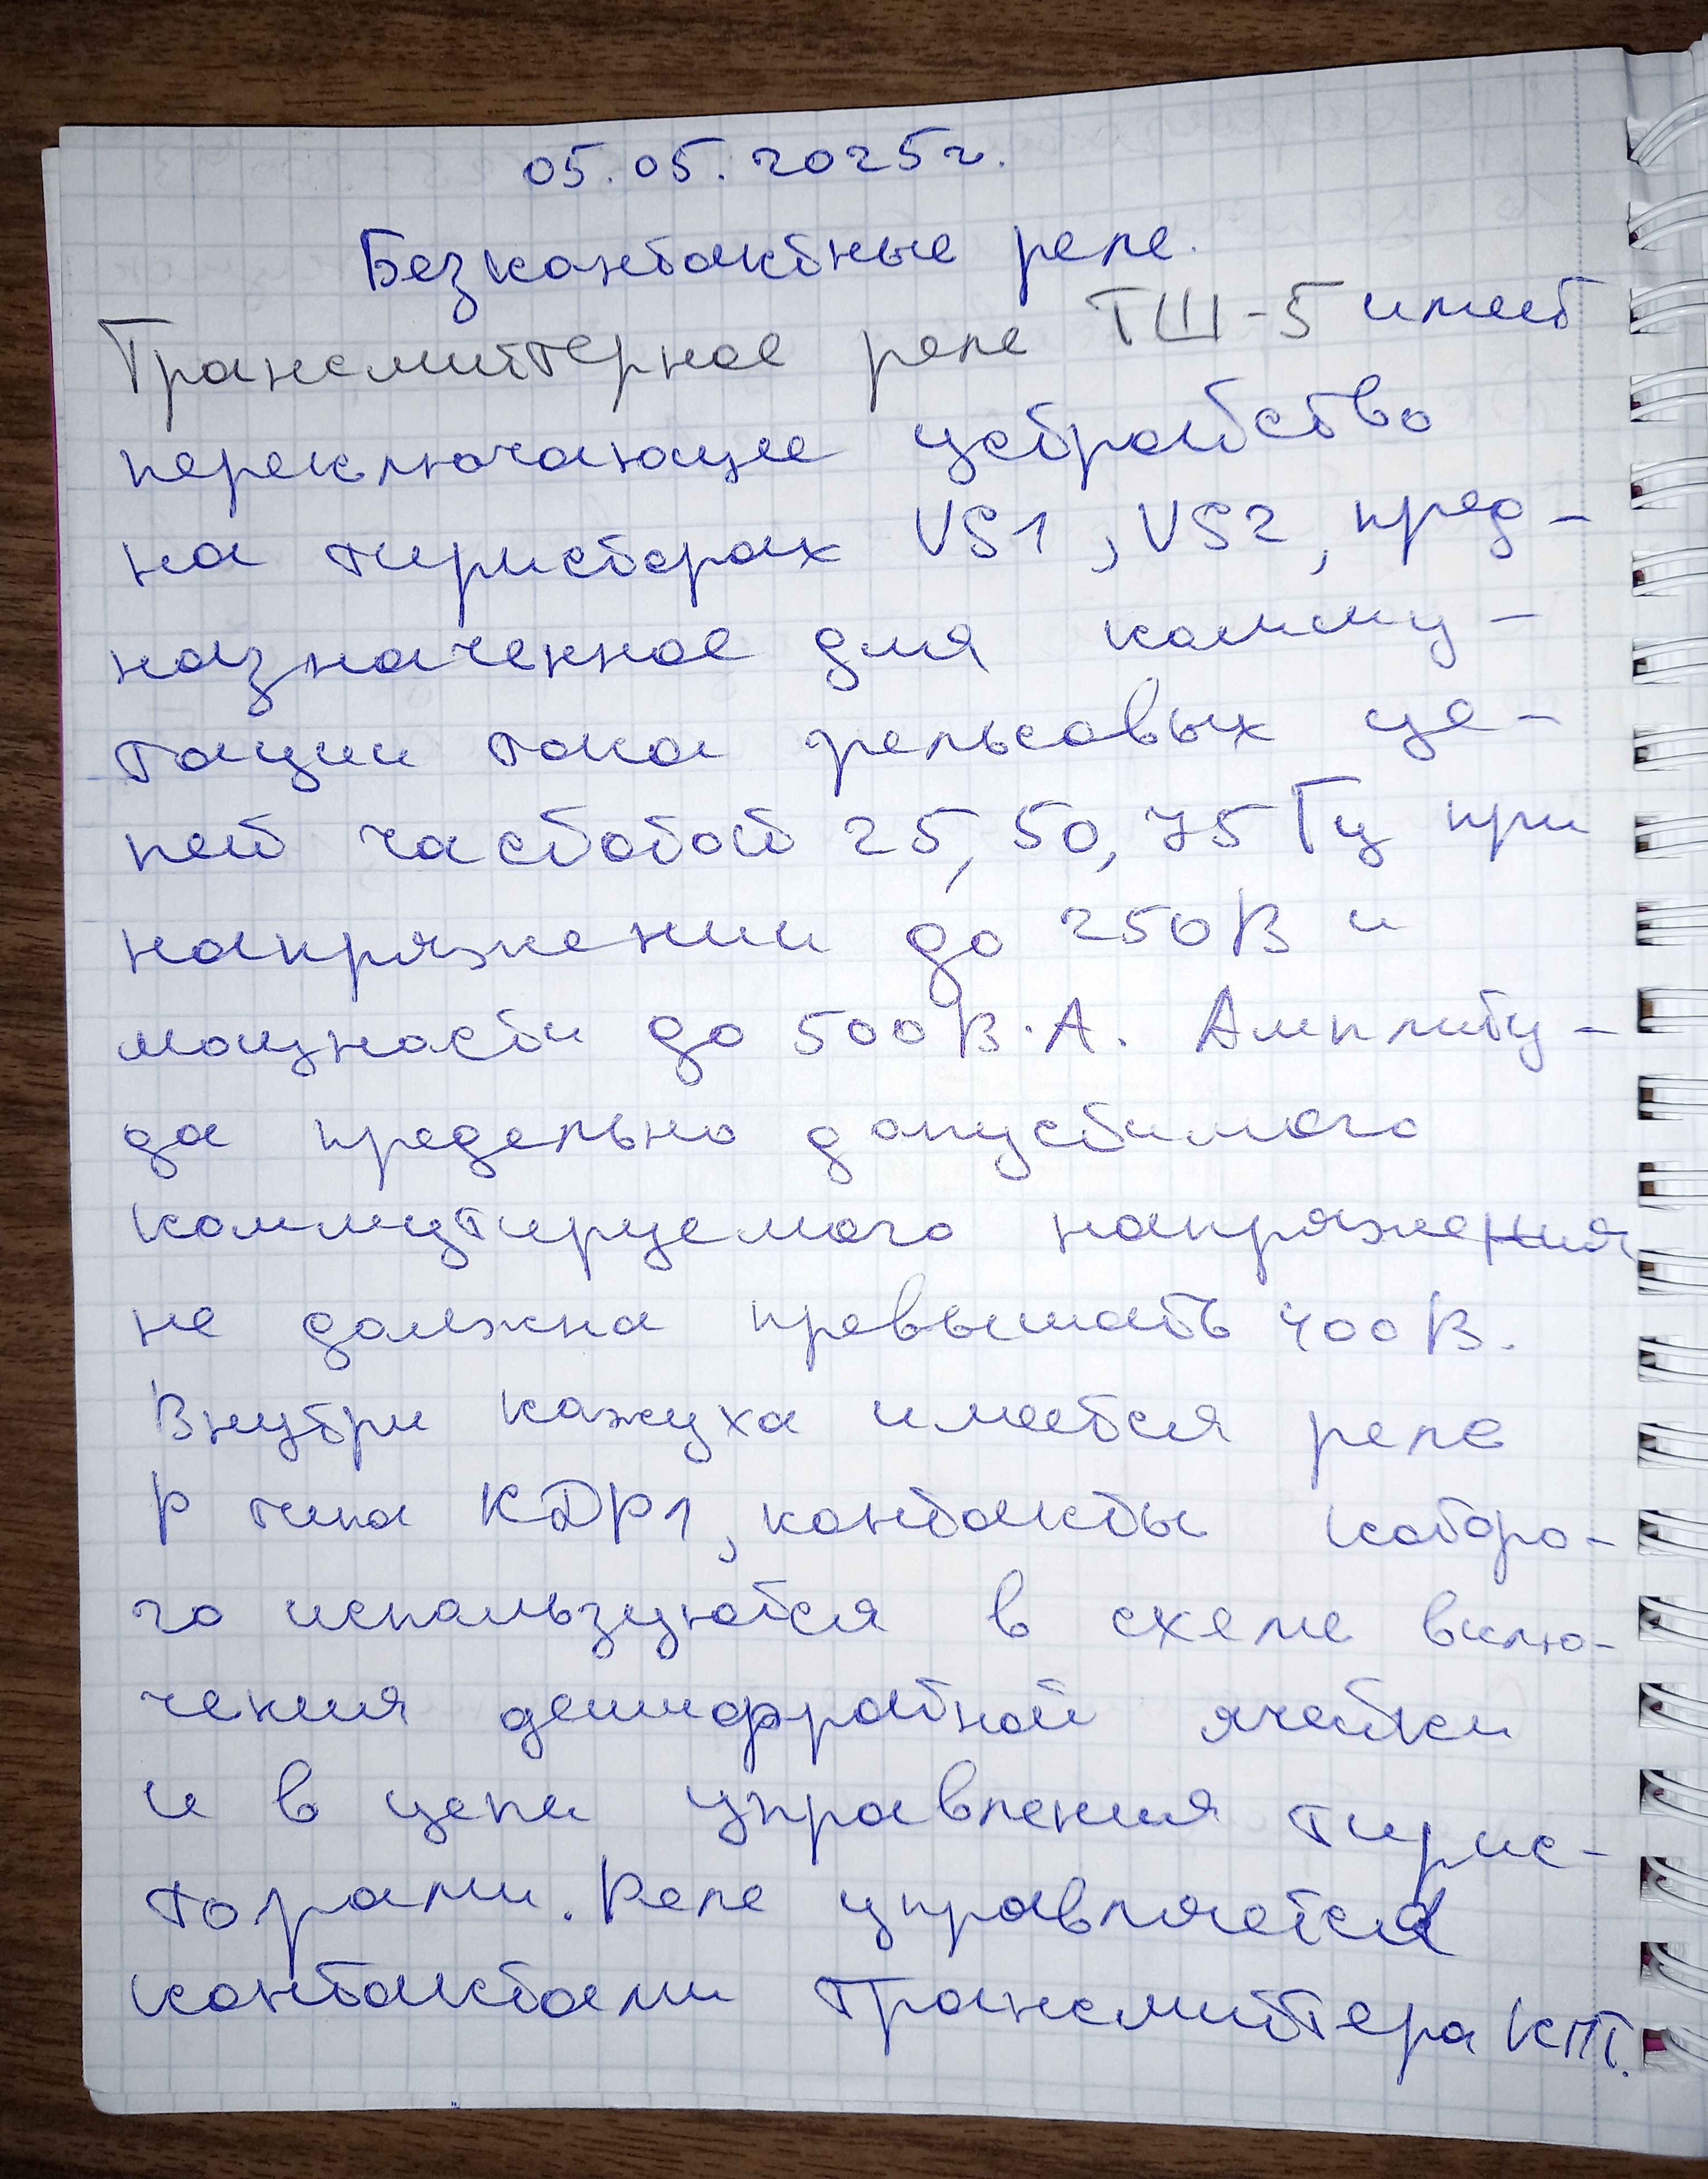 05.05.2025г.
Безконтактные реле.
Трансмиттерное реле ТШ-5 имеет
переключающее устройство
на тиристорах VS1, VS2, пред-
назначенное для комму-
тации тока рельсовых це-
пей частотой 25, 50, 75 Гц при
напряжении до 250 В и
мощности до 500 В·А. Амплиту-
да предельно допустимого
коммутируемого напряжения
не должна превышать 400 В.
Внутри кажуха имеется реле
Р типа КДР1, контакты которо-
го используются в схеме вклю-
чения дешифраторной ячейки
и в цепи управления тирис-
торами. Реле управляется
контактами трансмиттера КПТ.